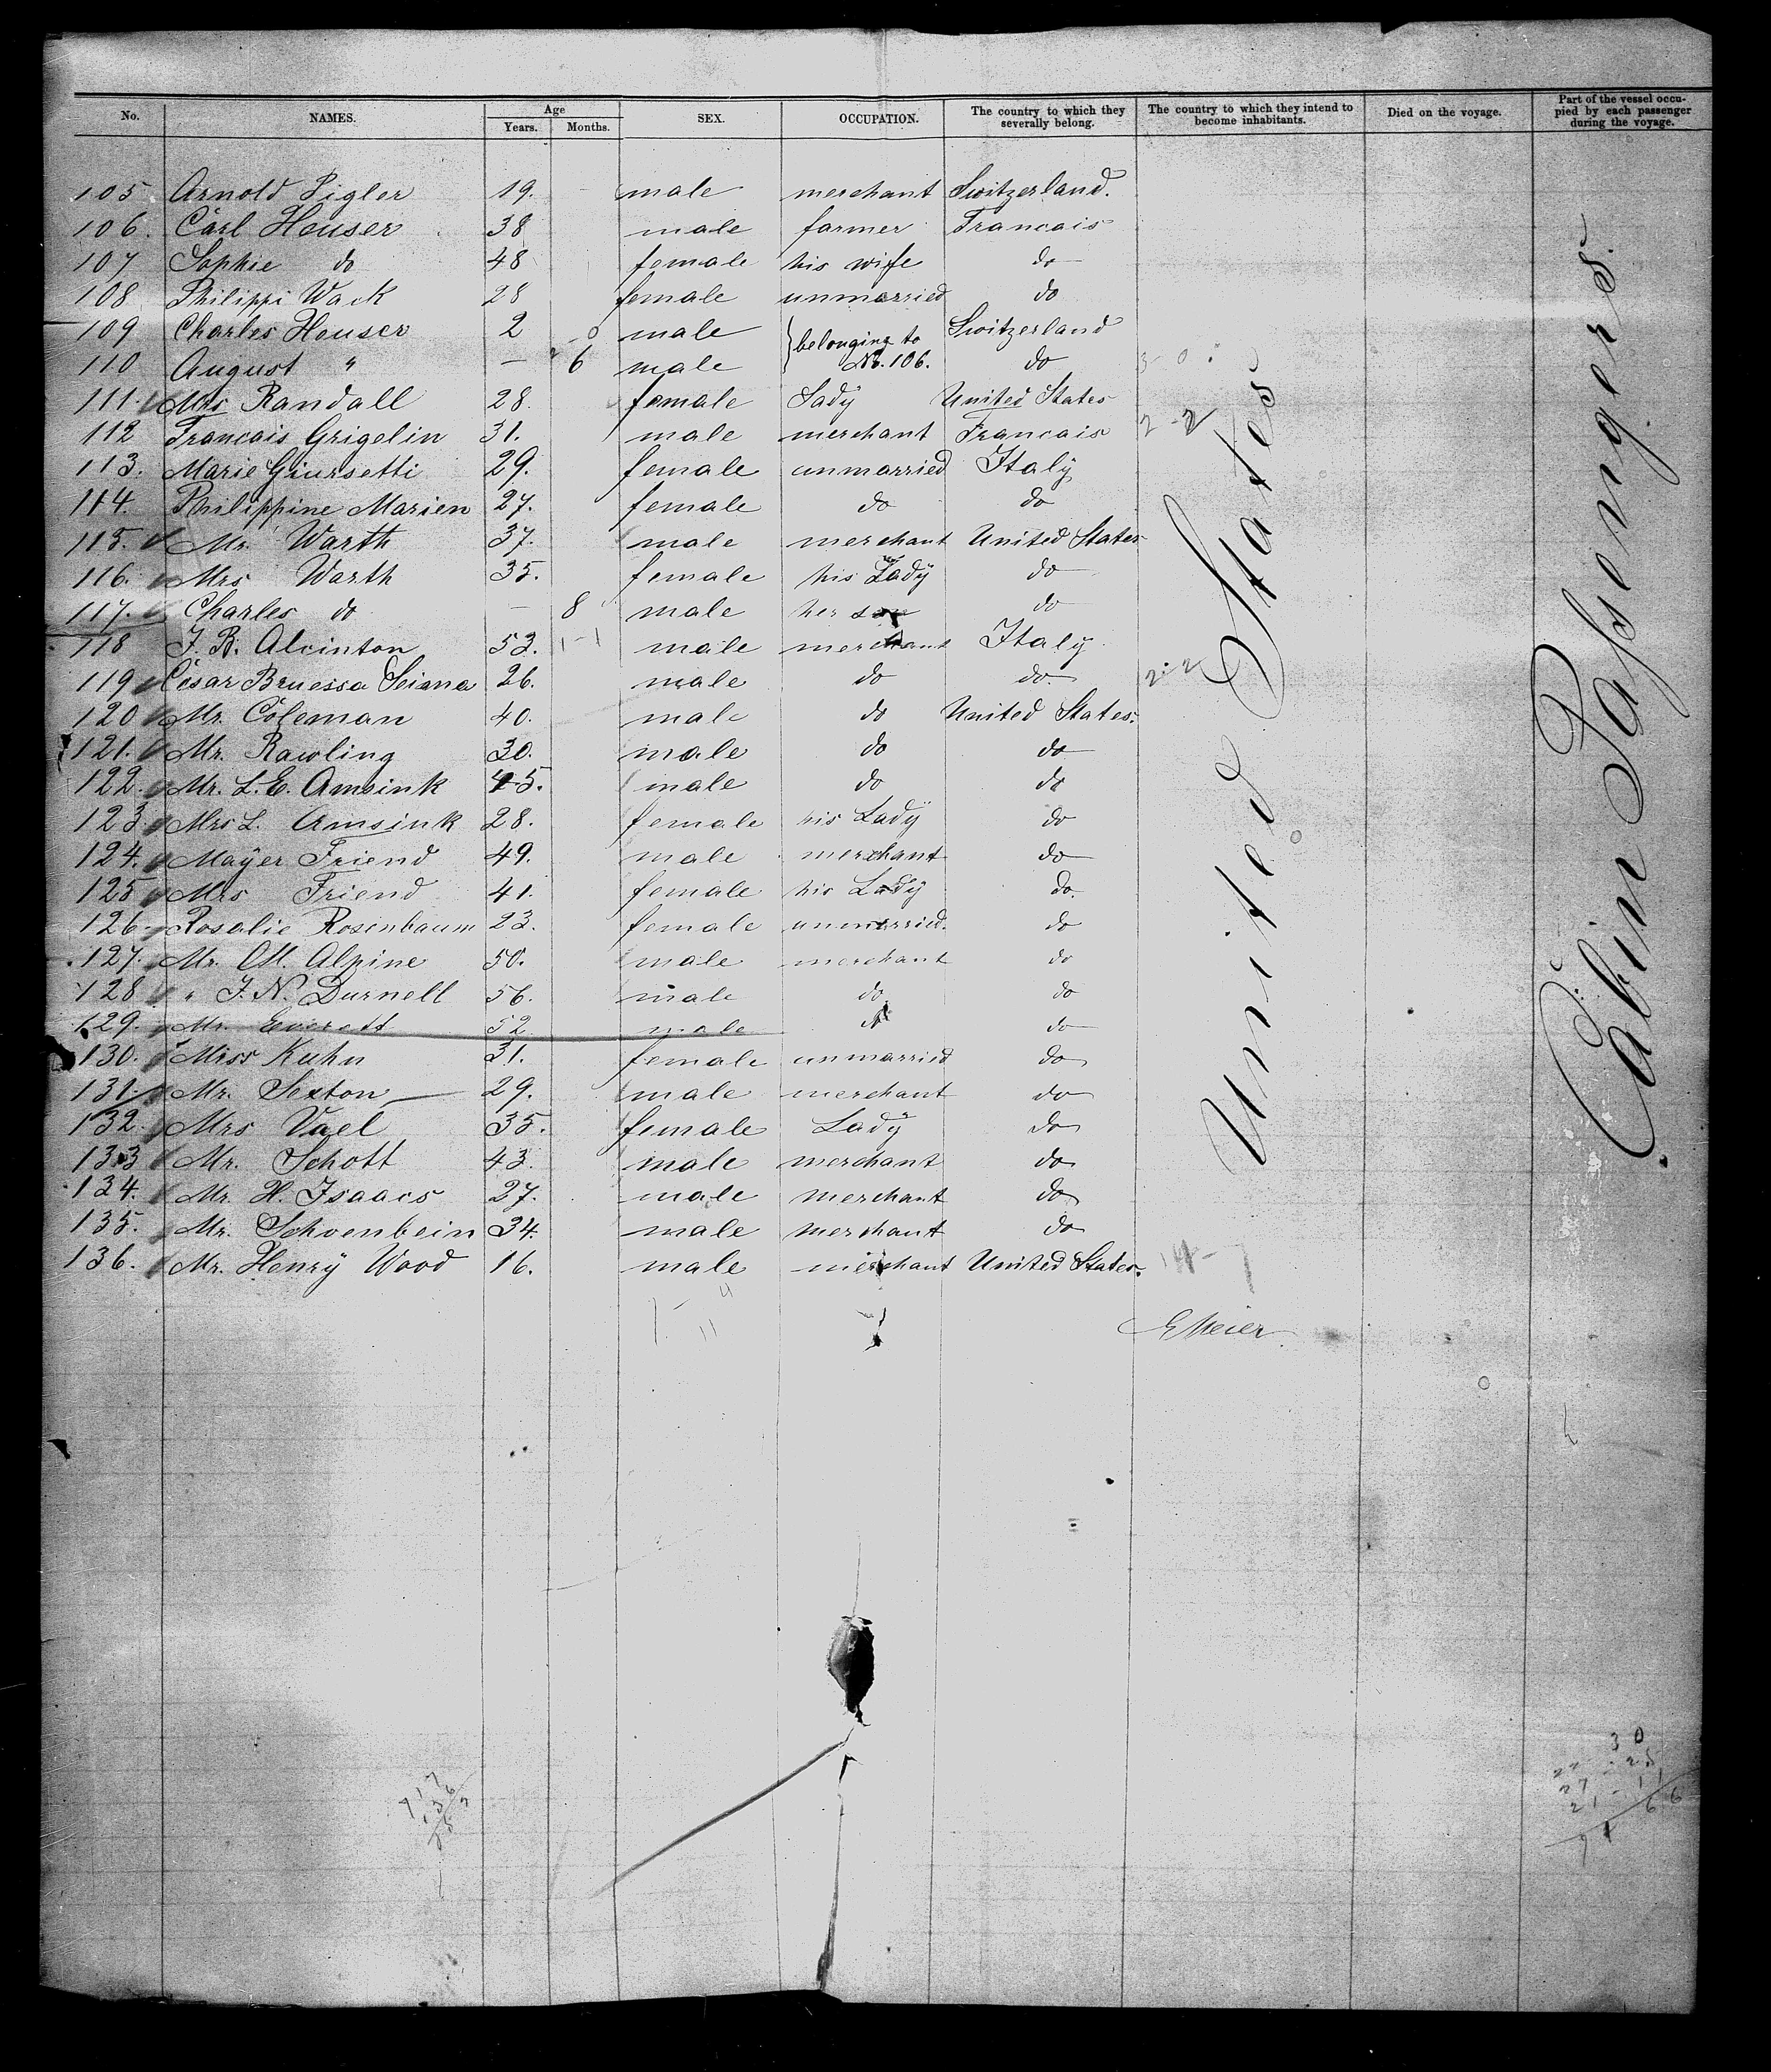 No. NAMES. Age Years. Months. SEX. OCCUPATION. The country to which they severally belong. The country to which they intend to become inhabitants. Died on the voyage. Part of the vessel occupied by each passenger during the voyage.
105 Arnold Sigler 19. male merchant Switzerland.
106. Carl Heuser 38 male farmer Francais
107 Sophie do 48 female his wife do
108 Philippi Wack 28 female unmarried do
109 Charles Heuser 2 male belonging to Switzerland
110 August " — 6 male No. 106. do
111. Mrs Randall 28. female Lady United States
112 Francais Grigelin 31. male merchant Francais 2-2
113. Marie Giursetti 29. female unmarried Italy
114. Philippine Marien 27. female do do
115. Mr. Warth 37. male merchant United States
116. Mrs Warth 35. female his Lady do
117. Charles do — 8 male her son do
118 J. B. Alcinton 53. 1-1 male merchant Italy
119 Cesar Bruessa Seiana 26. male do do 2-2
120 Mr. Coleman 40. male do United States.
121. Mr. Rawling 30. male do do
122. Mr. L. E. Amsink 45. male do do
123. Mrs L. Amsink 28. female his Lady do
124. Mayer Friend 49. male merchant do
125 Mrs Friend 41. female his Lady do.
126. Rosalie Rosenbaum 23. female unmarried. do
127. Mr. M. Alpine 50. male merchant do
128 " J. N. Durnell 56. male do do
129. Mr. Everett 52 male do do
130. Miss Kuhn 31. female unmarried do
131. Mr. Sexton 29. male merchant do
132. Mrs Vael 35. female Lady do
133 Mr. Schott 43. male merchant do
134. Mr. H. Isaacs 27. male merchant do
135. Mr. Schoenbein 34. male merchant do
136. Mr. Henry Wood 16. male merchant United States.
United States
Cabin Passengers.
11
E Meier